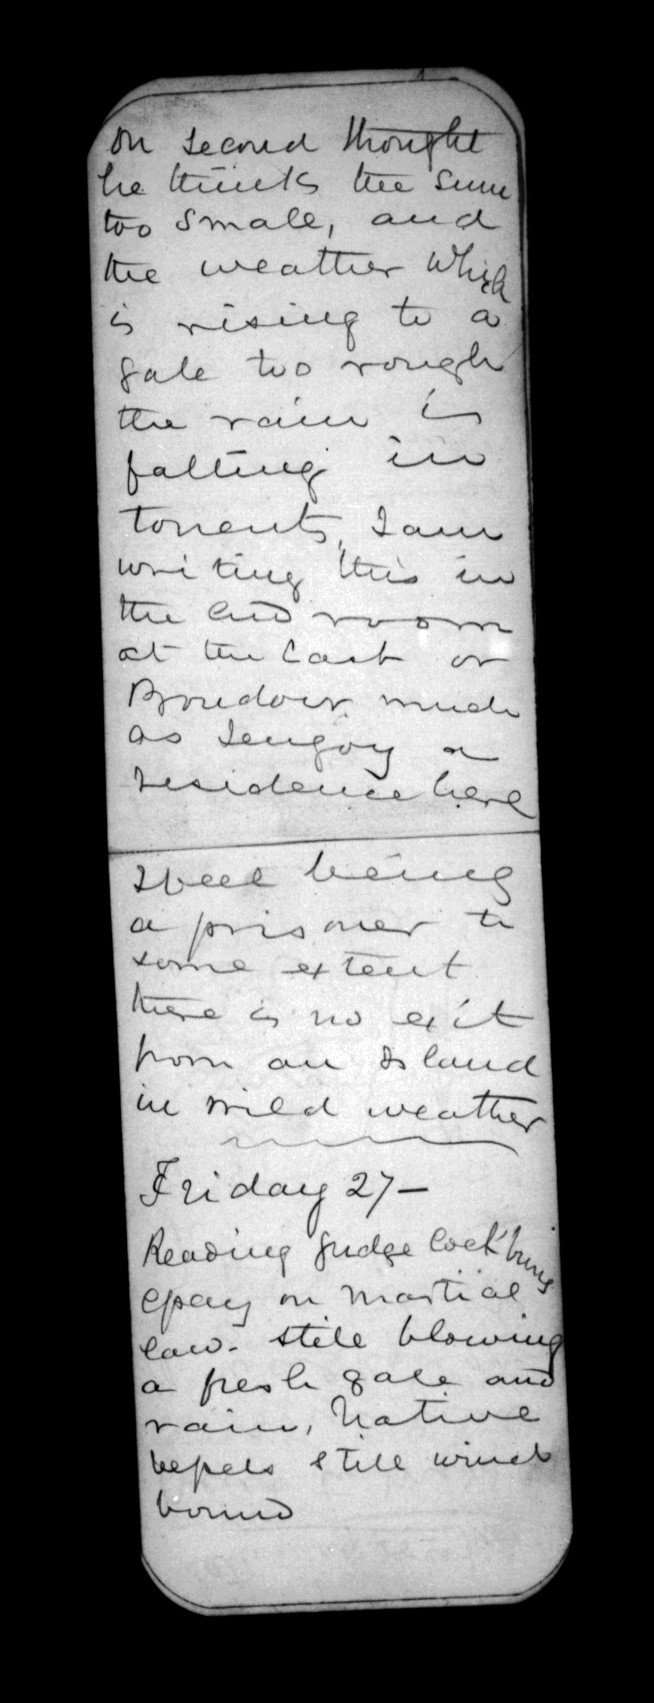 on second thought
he thinks the sum
too small, and
the weather which
is rising to a
gale too rough
the rain is
falling in
torrents, I am
writing this in
the end room
at the East or
Boudoir much
as I enjoy a
residence here
I feel being
a prisoner to
some extent
there is no exit
from an Island
in wild weather
Friday 27—
Reading Judge Cockburns
essay on Martial
law. still blowing
a fresh gale and
rain, Native
vessels still wind
bound